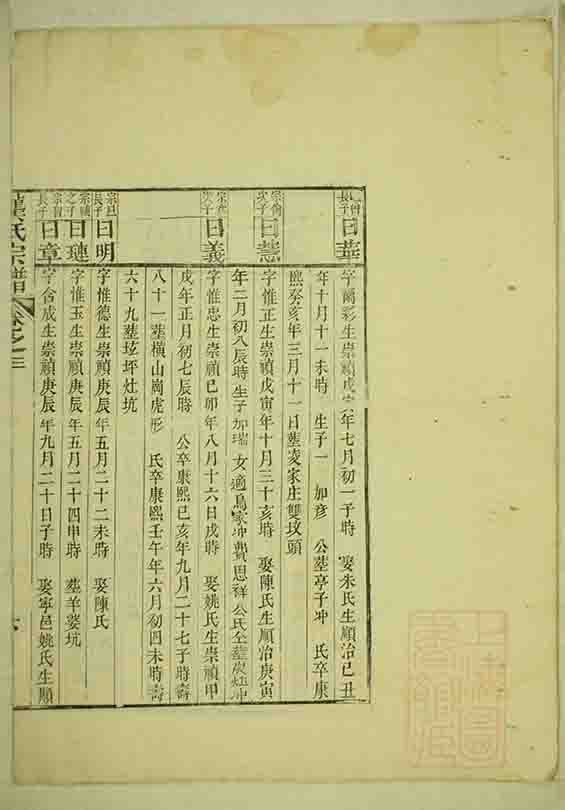 曰華 字爾彩生崇禎戊寅年七月初一子時 娶朱氏生順治己丑
年十月十一未時 生子一 加彥 公塟亭子冲 氏卒康
熙癸亥年三月十一日塟凌家庄雙坟頭
次子 曰慧 字惟正生崇禎戊寅年十月三十亥時 娶陳氏生順治庚寅
年二月初八辰時生子加瑞 女適烏家冲費思祥 公氏仝塟炭𡉏冲
次子 曰義 字惟忠生崇禎已卯年八月十六日戌時 娶姚氏生崇禎甲
戌年正月初七辰時 公卒康熙已亥年九月二十七子時壽
八十一塟橫山崗虎形 氏卒康熙壬午年六月初四未時壽
六十九塟坟坪灶坑
宗旦長子 曰明 字惟德生崇禎庚辰年五月二十二未時 娶陳氏
之子 曰璉 字惟玉生崇禎庚辰年五月二十四申時 塟羊婆坑
長子 曰章 字含成生崇禎庚辰年九月二十日子時 娶寧邑姚氏生順
氏宗譜 卷之二